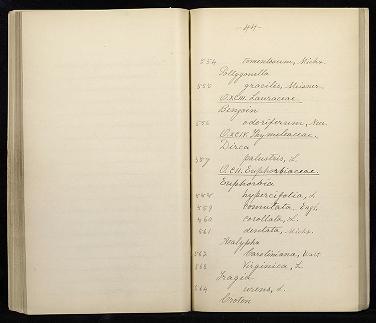 -44-
554 tomentosum, Michx.
Polygonella
555 gracilis, Meisner.
O.XCIII. Lauraceae.
Benzoin
556 odoriferum, Nees
O.XCIV. Thymeleaceae.
Dirca
557 palustris, L.
O.CII. Euphorbiaceae.
Euphorbia
558 hypericifolia, L.
559 commutata, Engl.
560 corollata, L.
561 dentata, Michx.
Acalypha
562 Caroliniana, Walt.
563 Virginica, L.
Tragia
564 urens, L.
Croton